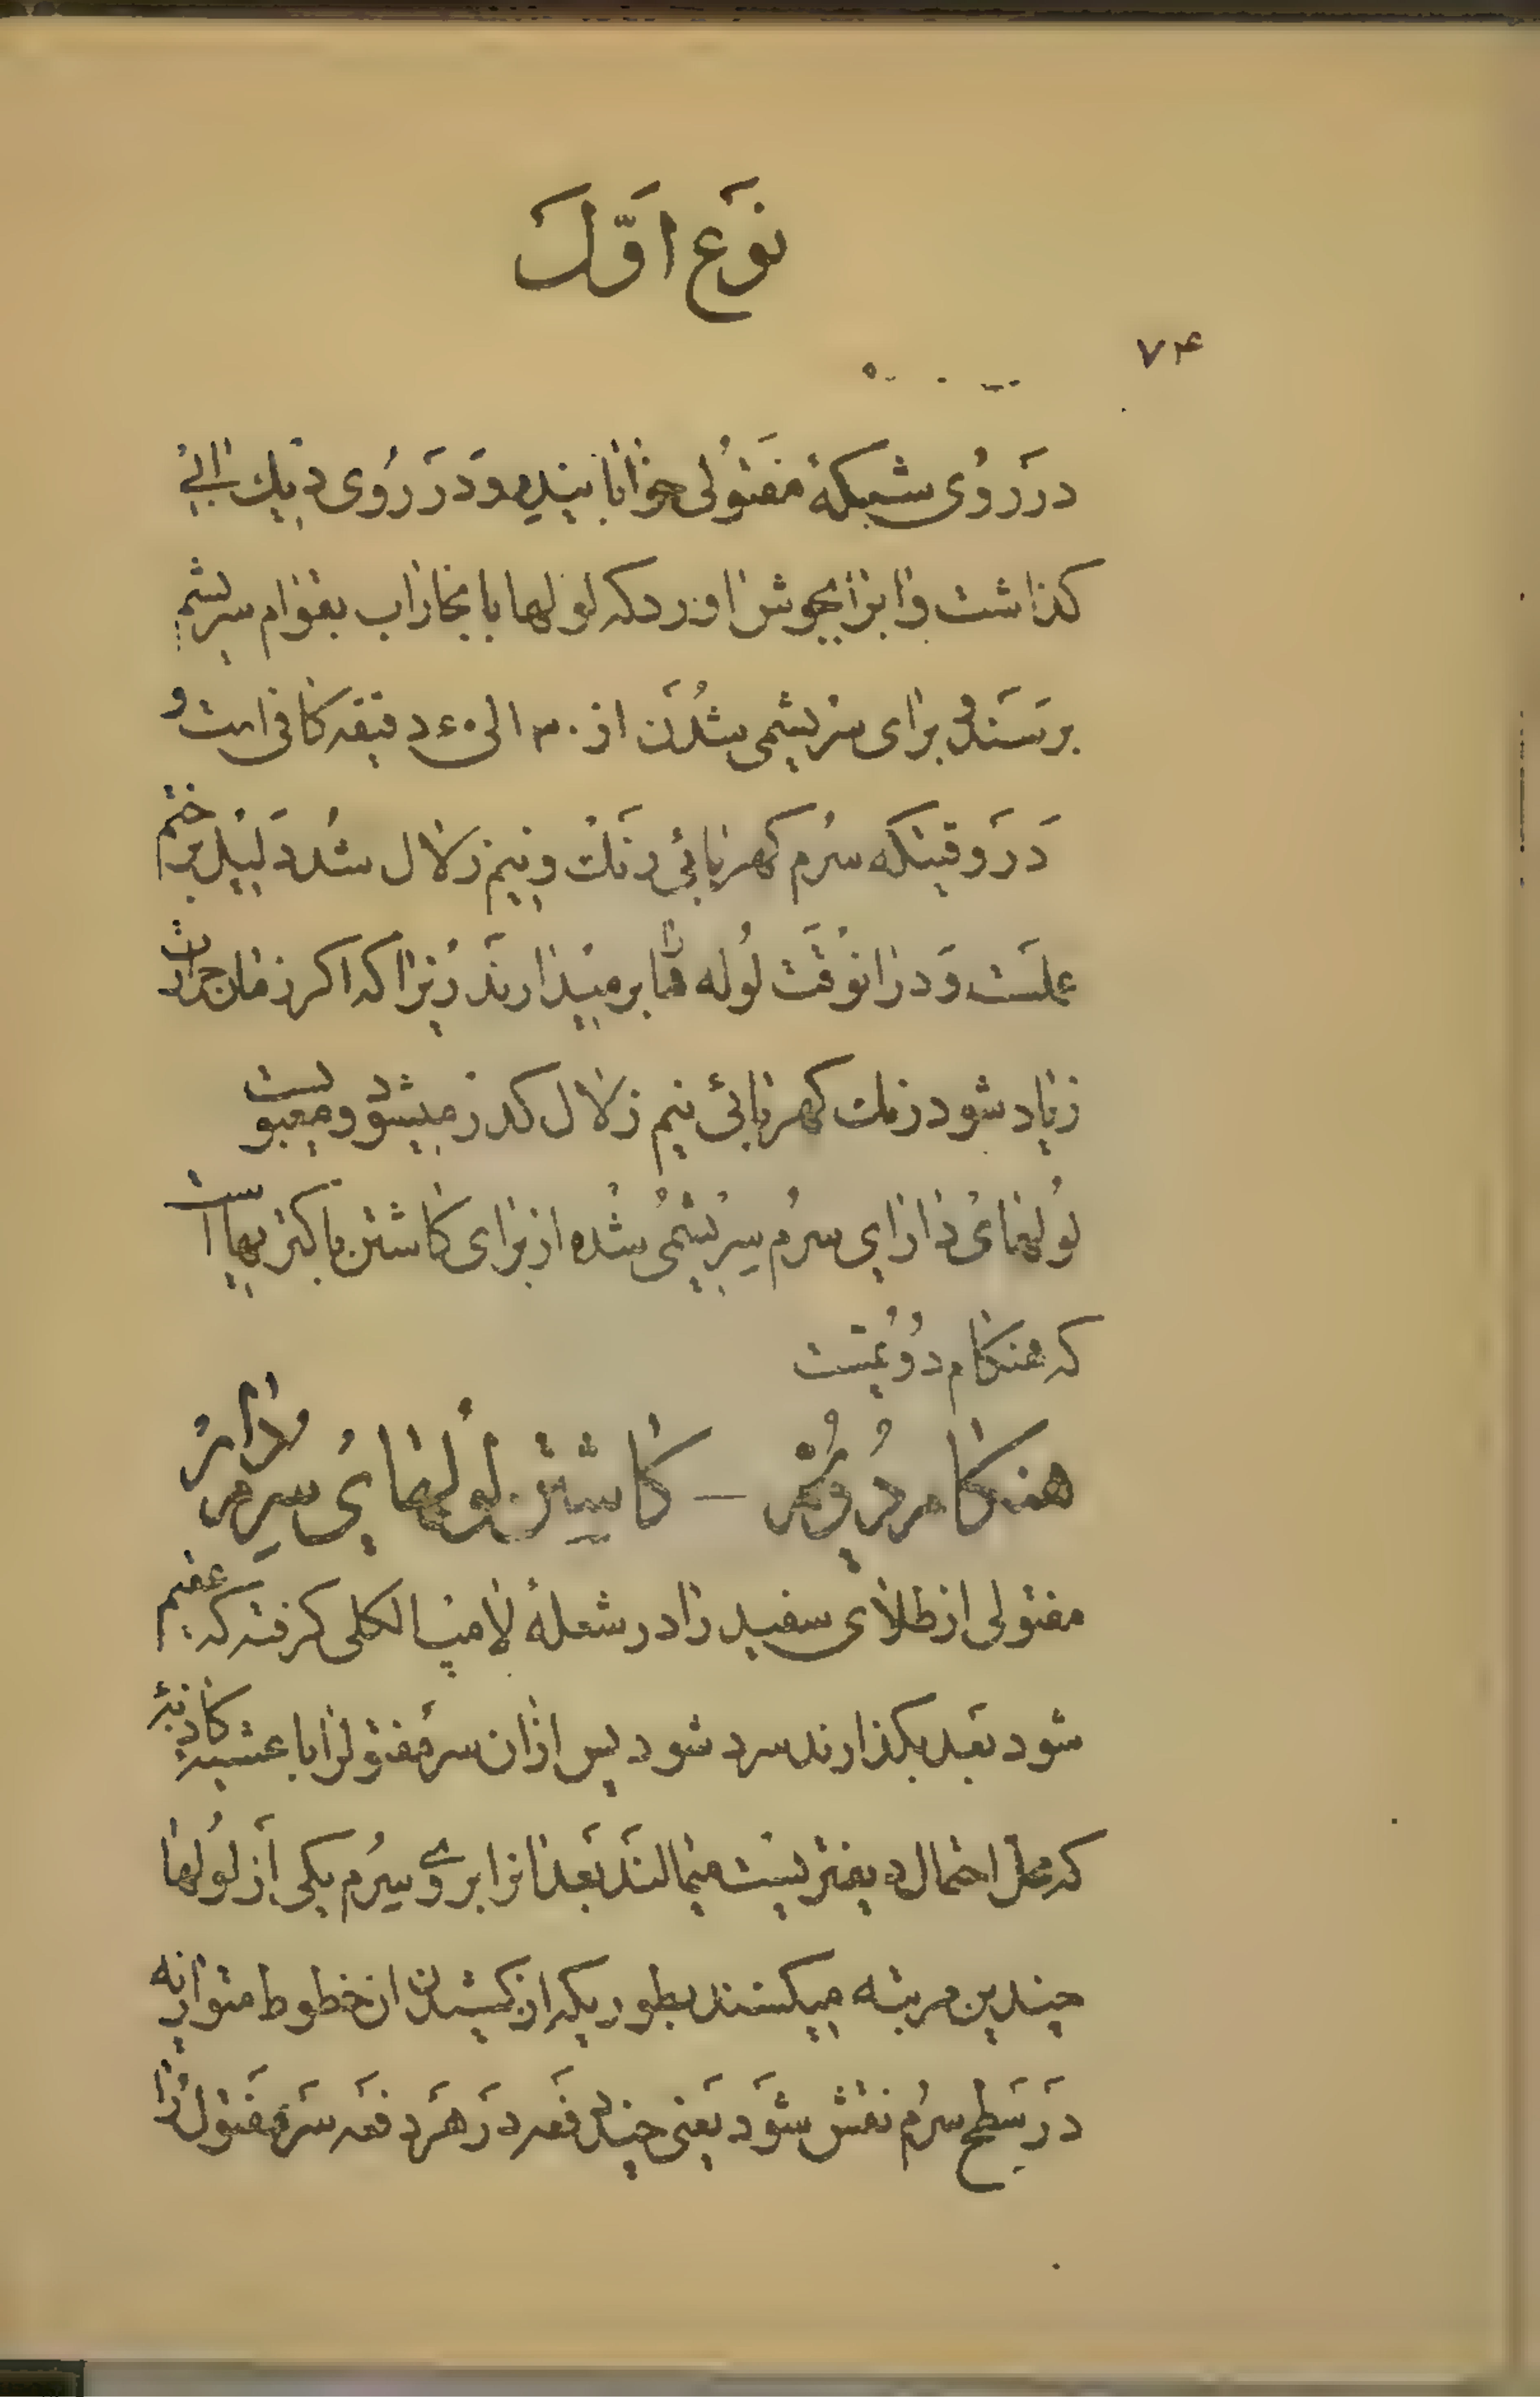 نَوع اوّل
۷۴
در رُوی شبکهٔ مفتُولی خوابانیده و دَر رُوی دیك آبی
کذاشت و ابرا بجوش اورد که لولها با بخار اب بقوام سریشم
برسَند و برای سریشمی شُدَن از ۳۰ الی ۴۰ دقیقه کافی است و
دَر وقتیکه سرُم کهربائی رنَك و نیم زلال شُد دَلیل بر ختم
عملست وَ در انوقَت لُوله ها را بر میدارند زیرا که اکر زمان حرارت
زیاد شود رنك کهربائی نیم زلال کدر میشود و معیوبست
لُولهای دارای سرُم سریشمی شُده از برای کاشتن باکتریها است
که هنکام دوُیمست
هنکام دوُیّم – کاشتن لُولهایُ سرم دار
مفتولی از طلای سفید را در شعلهٔ لامپ الکلی کرفته که عقیم
شود بَعد بکذارند سرد شود پس ازان سر مفتول را با غشاء کاذبهٔ
که محل احتمال دیفتریست میمالند بَعد انرا بروی سِرُم یکی اَز لُولها
چندین مرتبه میکشند بطوریکه از کشیدن ان خطوط متوازیه
دَر سَطح سرُم نقش شوَد یَعنی چند دفعه دَر هَر دفعه سَر مَفتول را